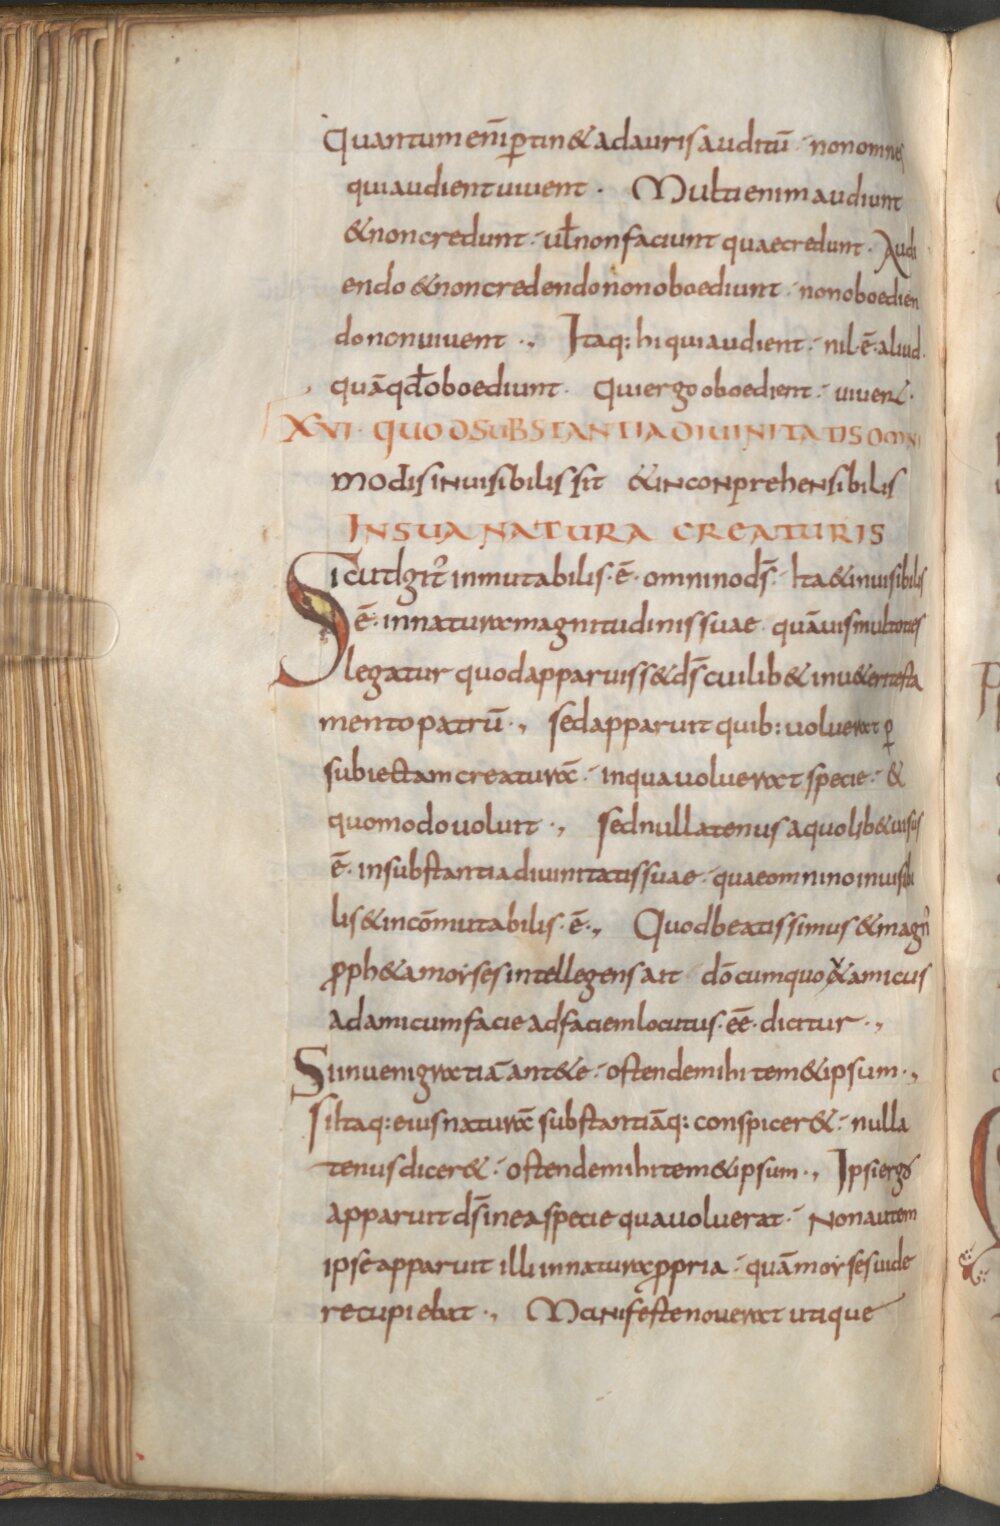 Quantum enī ꝑtin& ad auris auditū· non omnes
qui audient vivent· Multi enim audiunt
& non credunt· vƚ non faciunt quae credunt· Audi
endo & non credendo non oboediunt· non oboedien
do non vivent·, Itaq: hi qui audient· nil·ē·aliud·
quā qđ oboediunt· Qui ergo oboedient· vivent·
XVI· QUOD SUBSTANTIA DIVINITATIS OMNI
modis invisibilis sit & inconprehensibilis
IN SUA NATURA CREATURIS
Sicut igit̃ inmutabilis·ē· omnino ds̄· Ita & invisibilis
ē· in natura magnitudinis suae· quāvis multoties
legatur quod apparuiss& ds̄ cuilib& in v&eri testa
mento patrū·, sed apparuit quib: voluerat ꝑ
subiectam creaturā· in qua voluerat specie· &
quomodo voluit·, sed nullatenus a quolib& visus
ē· in substantia divinitatis suae· quae omnino invisibi
lis & incōmutabilis·ē·, Quod beatissimus & magn᾽
ꝓph&a moyses intellegens ait dō cum quo & amicus
ad amicum facie ad faciem locutus·eē·dicitur·,
Si inveni gratiā ant& e· ostende mihi tem&ipsum·,
si Itaq: eius naturā substantiāq: conspicer&· nulla
tenus dicer&· ostende mihi tem&ipsum·, Ipsi ergo
apparuit ds̄ in ea specie qua voluerat· Non autem
ipse apparuit illi in natura ꝓpria· quā moyses vide
re cupiebat·, Manifeste noverat utique